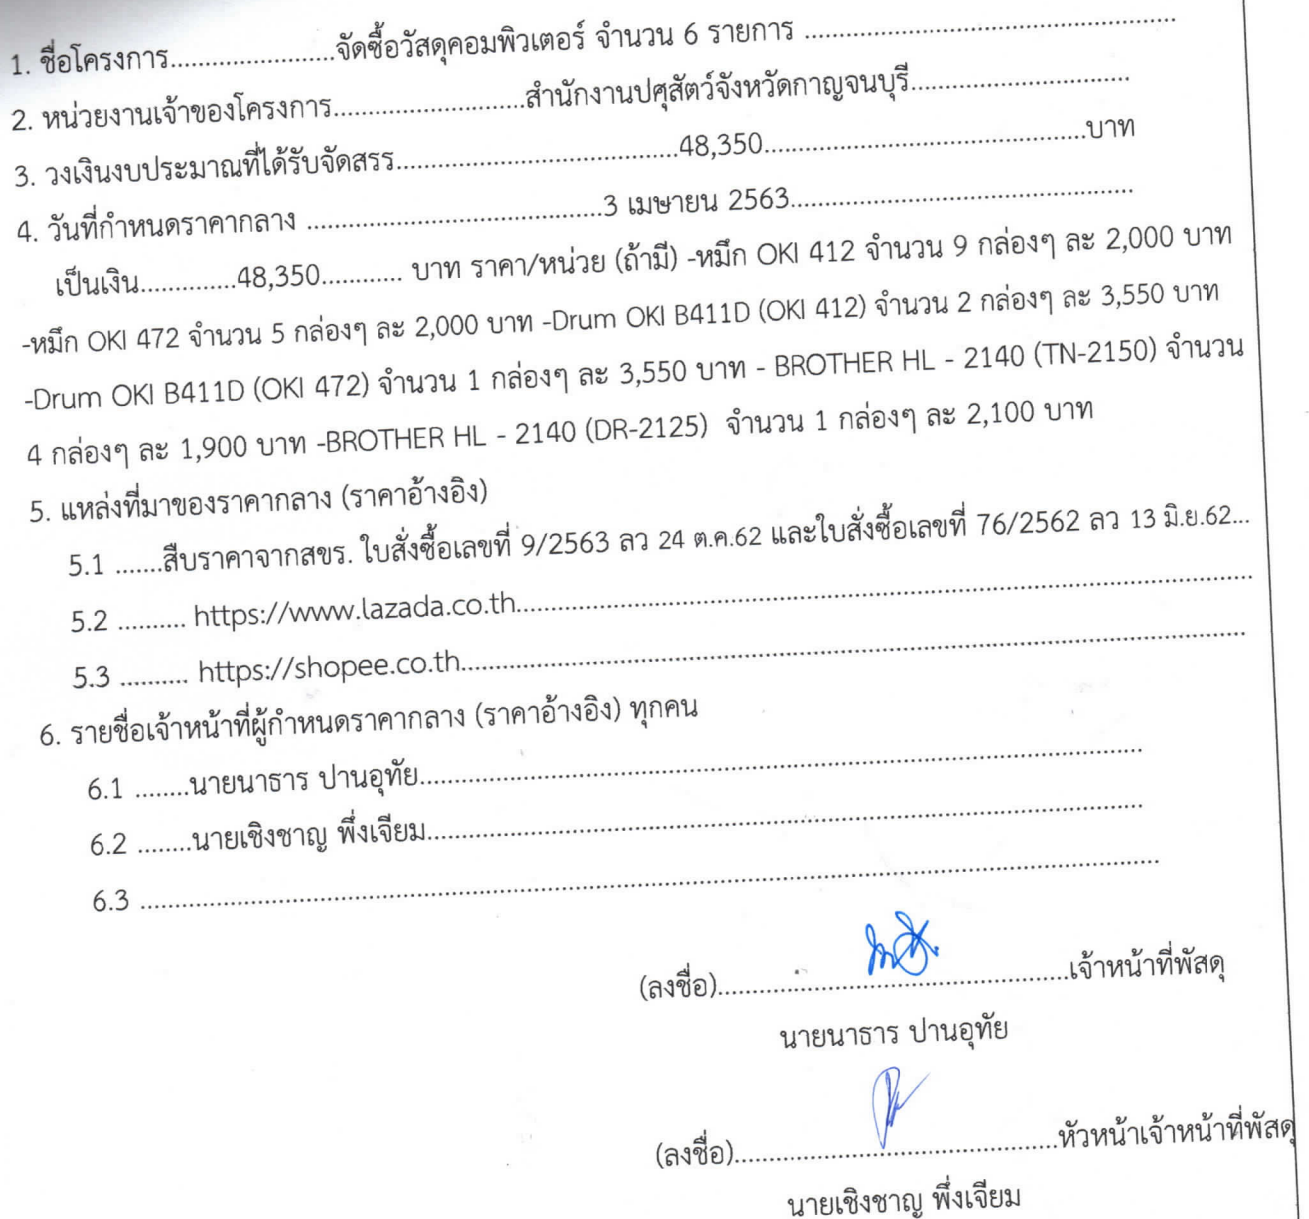 1. ชื่อโครงการ........................จัดซื้อวัสดุคอมพิวเตอร์ จำนวน 6 รายการ ......................................................
2. หน่วยงานเจ้าของโครงการ............................สำนักงานปศุสัตว์จังหวัดกาญจนบุรี................................
3. วงเงินงบประมาณที่ได้รับจัดสรร.........................................48,350...............................................บาท
4. วันที่กำหนดราคากลาง ...........................................3 เมษายน 2563..................................................
เป็นเงิน..............48,350............ บาท ราคา/หน่วย (ถ้ามี) -หมึก OKI 412 จำนวน 9 กล่องๆ ละ 2,000 บาท
-หมึก OKI 472 จำนวน 5 กล่องๆ ละ 2,000 บาท -Drum OKI B411D (OKI 412) จำนวน 2 กล่องๆ ละ 3,550 บาท
-Drum OKI B411D (OKI 472) จำนวน 1 กล่องๆ ละ 3,550 บาท - BROTHER HL - 2140 (TN-2150) จำนวน
4 กล่องๆ ละ 1,900 บาท -BROTHER HL - 2140 (DR-2125) จำนวน 1 กล่องๆ ละ 2,100 บาท
5. แหล่งที่มาของราคากลาง (ราคาอ้างอิง)
5.1 .......สืบราคาจากสขร. ใบสั่งซื้อเลขที่ 9/2563 ลว 24 ต.ค.62 และใบสั่งซื้อเลขที่ 76/2562 ลว 13 มิ.ย.62...
5.2 .......... https://www.lazada.co.th..........................................................................................................
5.3 .......... https://shopee.co.th.................................................................................................................
6. รายชื่อเจ้าหน้าที่ผู้กำหนดราคากลาง (ราคาอ้างอิง) ทุกคน
6.1 ........นายนาธาร ปานอุทัย.........................................................................................................
6.2 ........นายเชิงชาญ พึ่งเจียม........................................................................................................
6.3 ....................................................................................................................................................
(ลงชื่อ)...................................................เจ้าหน้าที่พัสดุ
นายนาธาร ปานอุทัย
(ลงชื่อ)...............................................หัวหน้าเจ้าหน้าที่พัสดุ
นายเชิงชาญ พึ่งเจียม